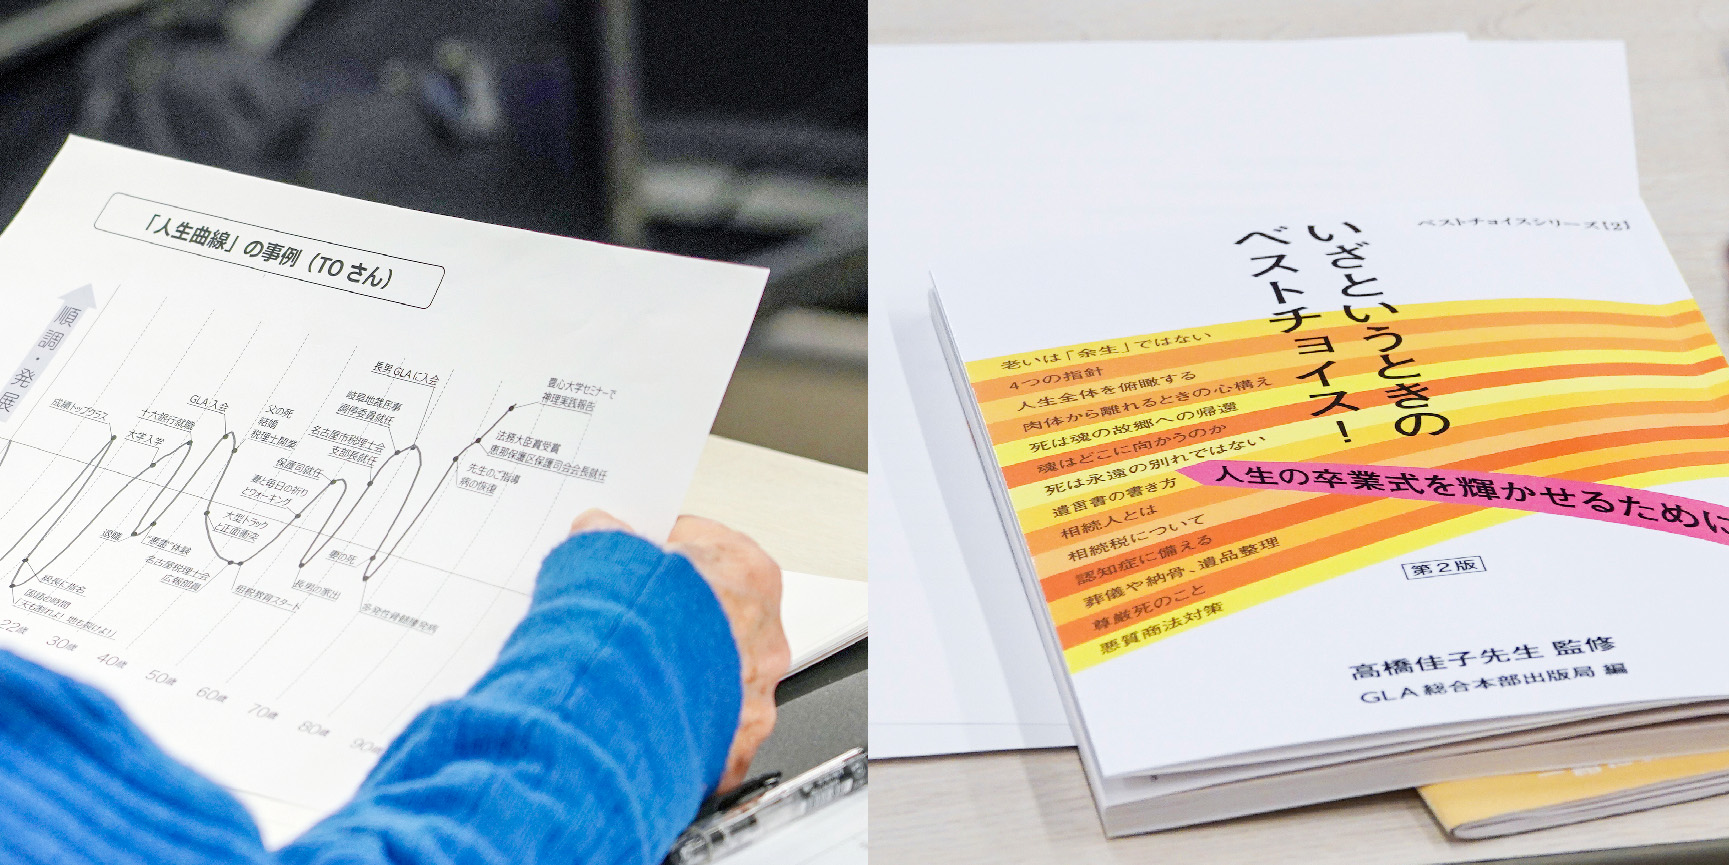 「人生曲線」の事例（TOさん）
順調・発展
成績トップクラス
十大銀行就職
大学入学
GLA入会
父の死
結婚
税理士開業
保護司就任
妻と毎日の祈り
とウォーキング
大型トラック
と正面衝突
長男GLAに入会
岐阜地裁民事
調停委員就任
名古屋市税理士会
支部長就任
豊心大学セミナーで
神理実践報告
法務大臣賞受賞
恵那保護区保護司会会長就任
先生のご指導
病の恢復
級長に指名
国語の時間
「天も割れよ！地も裂けよ！」
退職
"悪霊"体験
名古屋税理士会
広報部員
租税教育スタート
妻の死
長男の家出
多発性骨髄腫発病
22歳
30歳
40歳
50歳
60歳
70歳
80歳
90歳
ベストチョイスシリーズ[2]
いざというときの
ベストチョイス！
老いは「余生」ではない
4つの指針
人生全体を俯瞰する
肉体から離れるときの心構え
死は魂の故郷への帰還
魂はどこに向かうのか
死は永遠の別れではない
遺言書の書き方
相続人とは
相続税について
認知症に備える
葬儀や納骨、遺品整理
尊厳死のこと
悪質商法対策
人生の卒業式を輝かせるために
第2版
高橋佳子先生 監修
GLA総合本部出版局 編